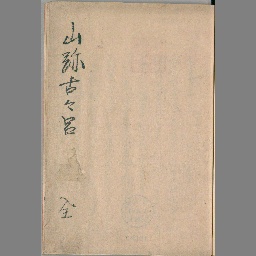 山跡古々呂
全